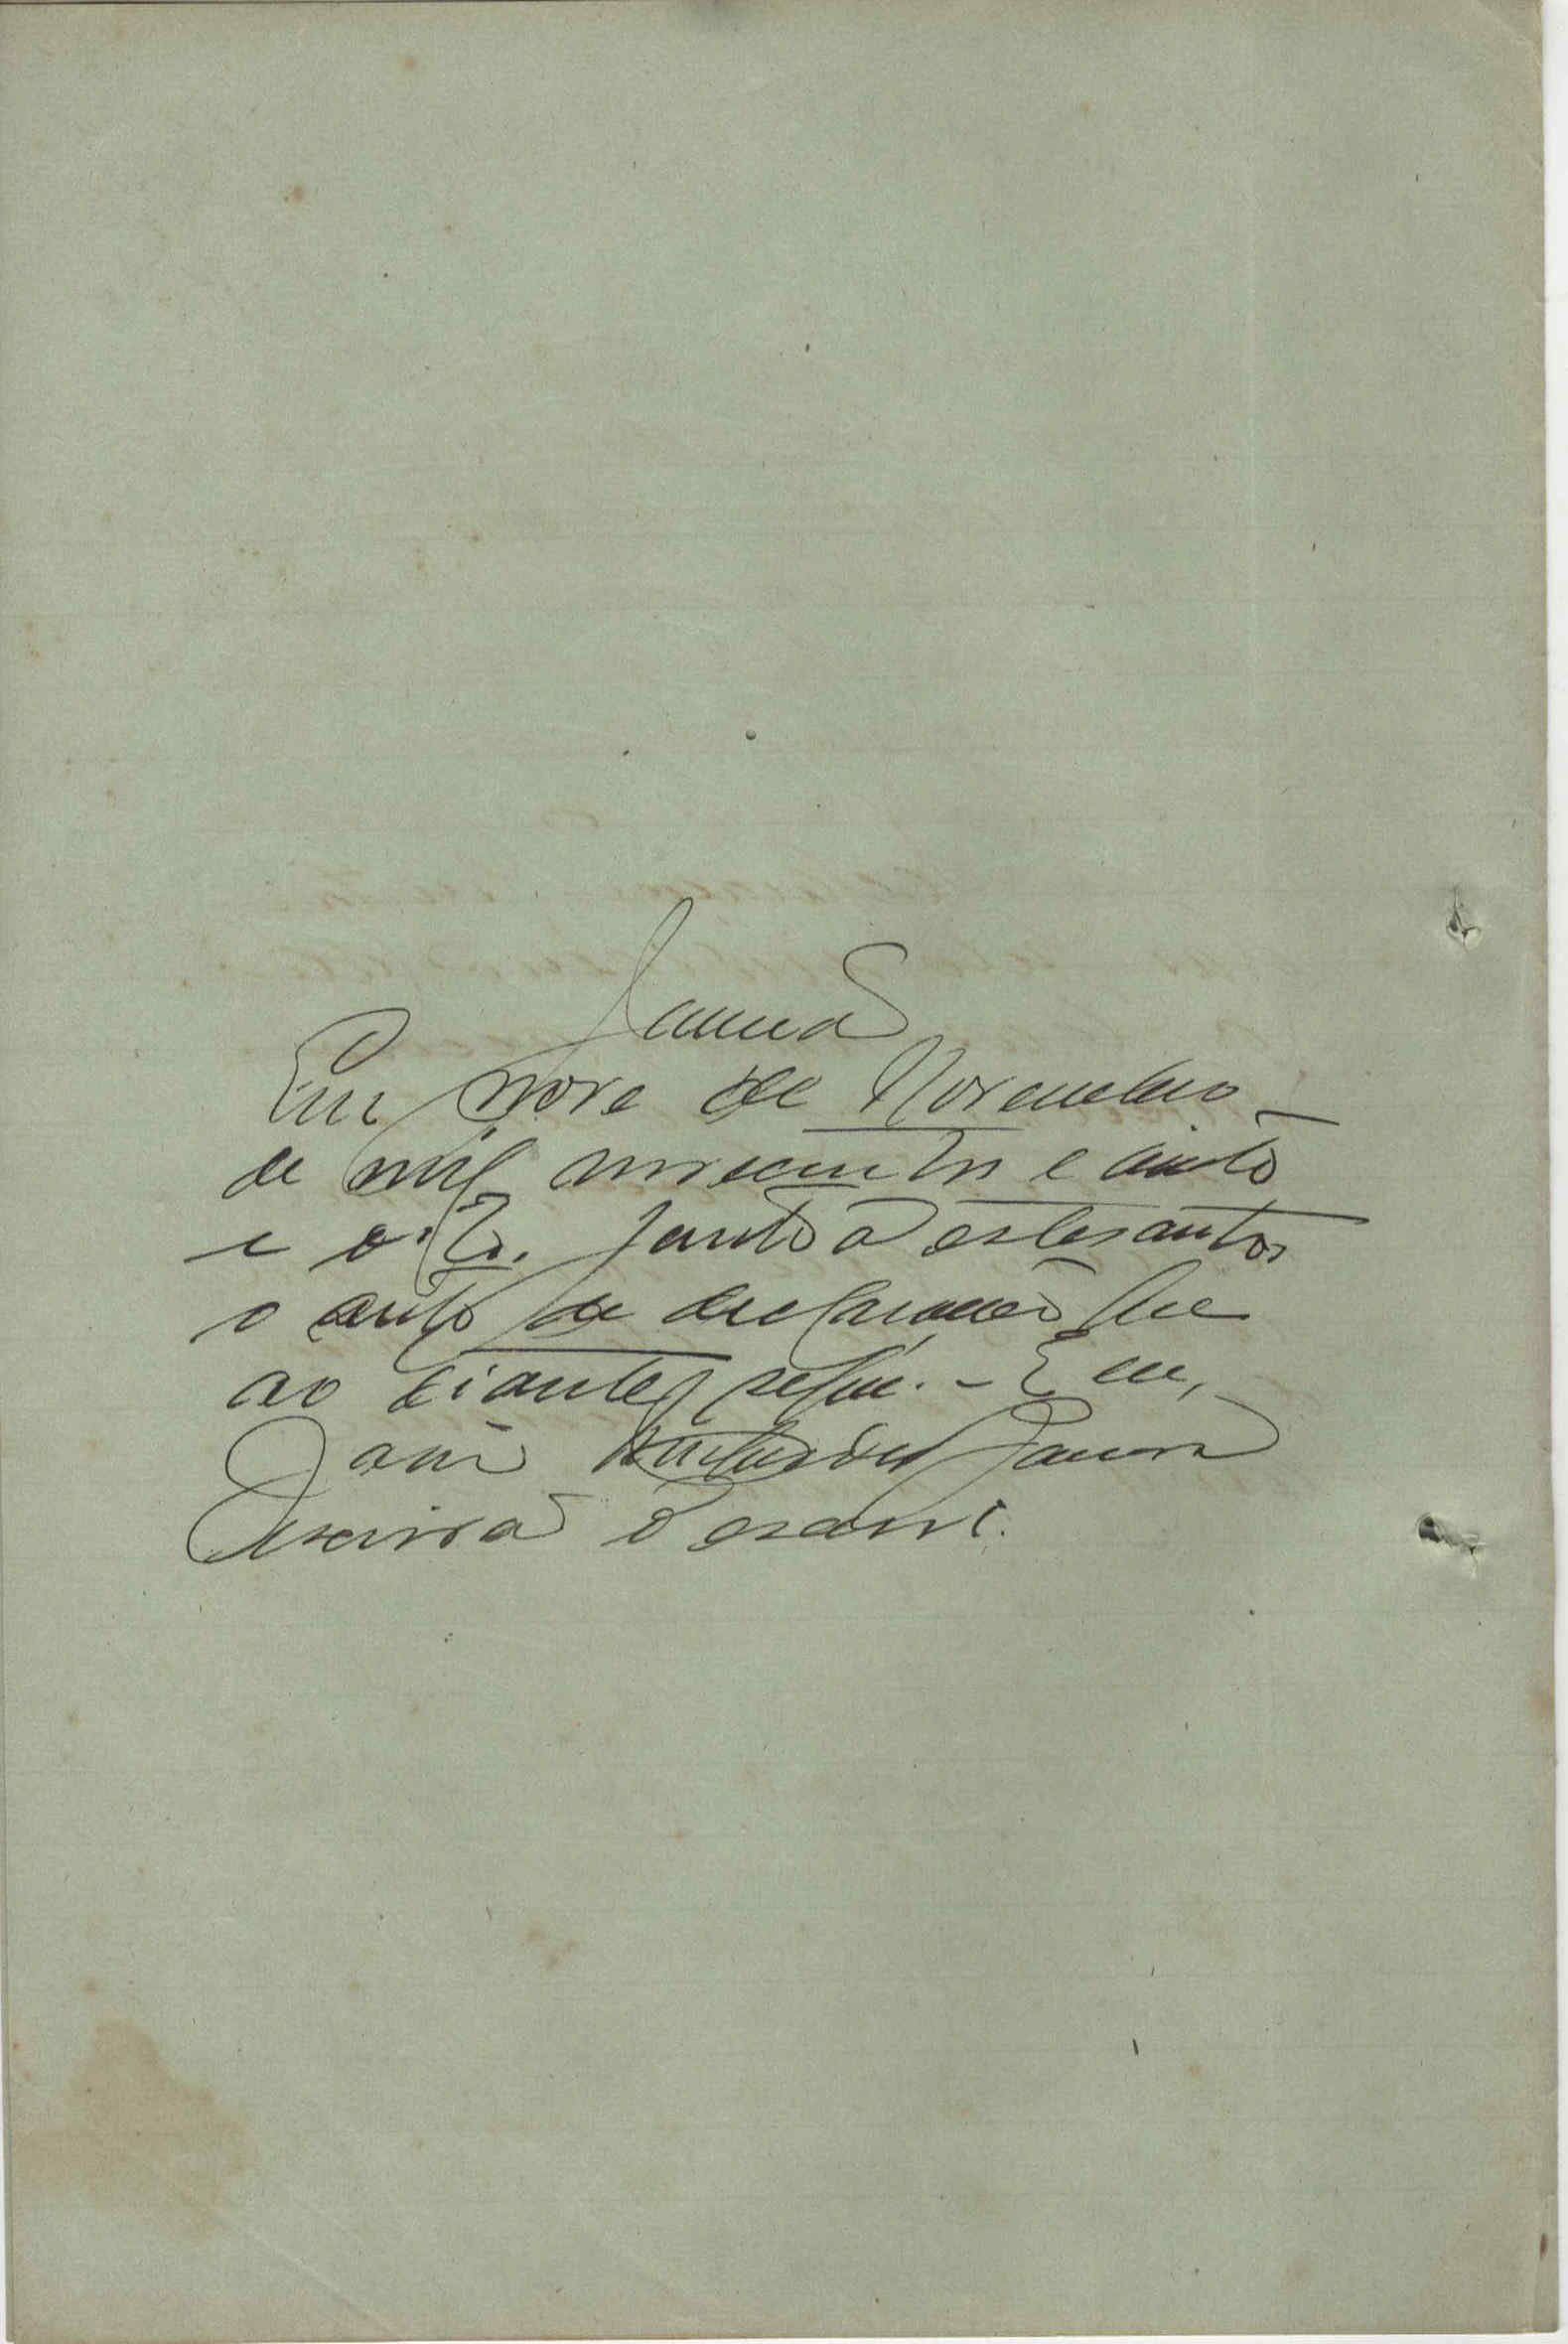 Juntada
Em nove de Novembro
de mil novecentos e vinte
e oito. junto a estes autos
o auto de declarações que
ao diante segue. - Eu,
João
Escrivão o escrevi.